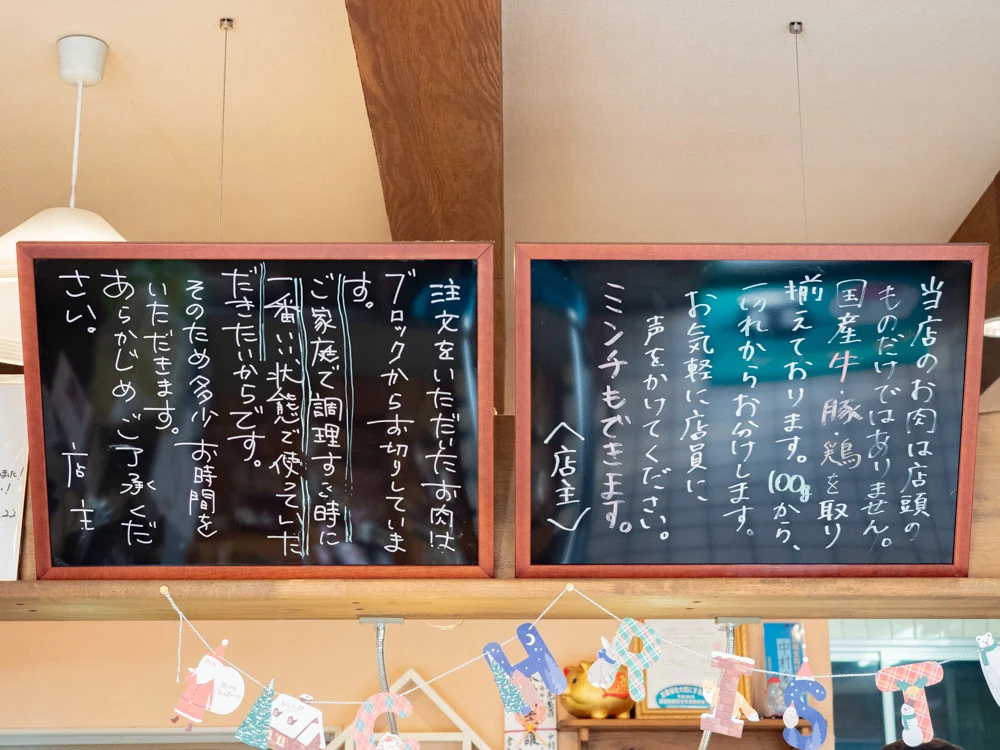 当店のお肉は店頭の
ものだけではありません。
国産牛豚・鶏を取り
揃えております。100gから、
一切れからお分けします。
お気軽に店員に
声をかけてください。
ミンチもできます。
〈店主〉
注文をいただいたお肉は
ブロックからお切りしていま
す。
ご家庭で調理する時に
一番いい状態で使っていた
だきたいからです。
そのため多少お時間を
いただきます。
あらかじめご了承くだ
さい。
店主
C
H
R
I
S
T